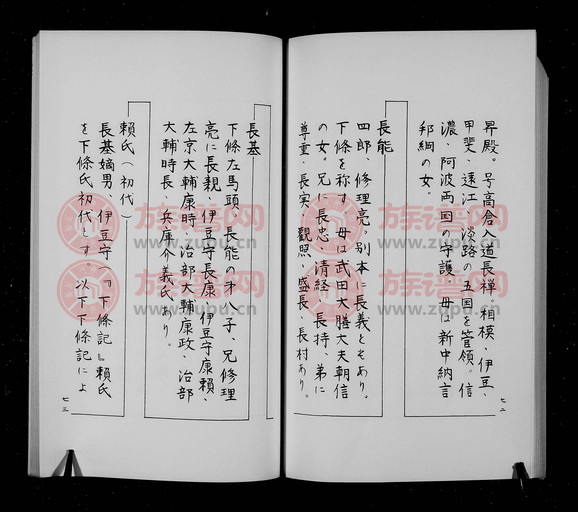 昇殿。号高倉入道長禅。相模、伊豆、
甲斐、遠江、淡路の五国を管領。信
濃、阿波両国の守護。母は新中納言
邦綱の女。
長能
四郎、修理亮。別本に長義ともあり。
下條を称す。母は武田大膳大夫朝信
の女。兄に長忠、清経、長持、弟に
尊重、長実、観照、盛長、長村あり。
七二
長基
下條左馬頭。長能の才八子、兄修理
亮に長親、伊豆守長康、伊豆守康頼、
左京大輔康時、治部大輔康政、治部
大輔時長、兵庫介義氏あり。
頼氏(初代)
長基嫡男。伊豆守(『下條記』頼氏
を下條氏初代とす。以下下條記によ
七三
族谱网
www.zupu.cn
族谱网
www.zupu.cn
族谱网
www.zupu.cn
族谱网
www.zupu.cn